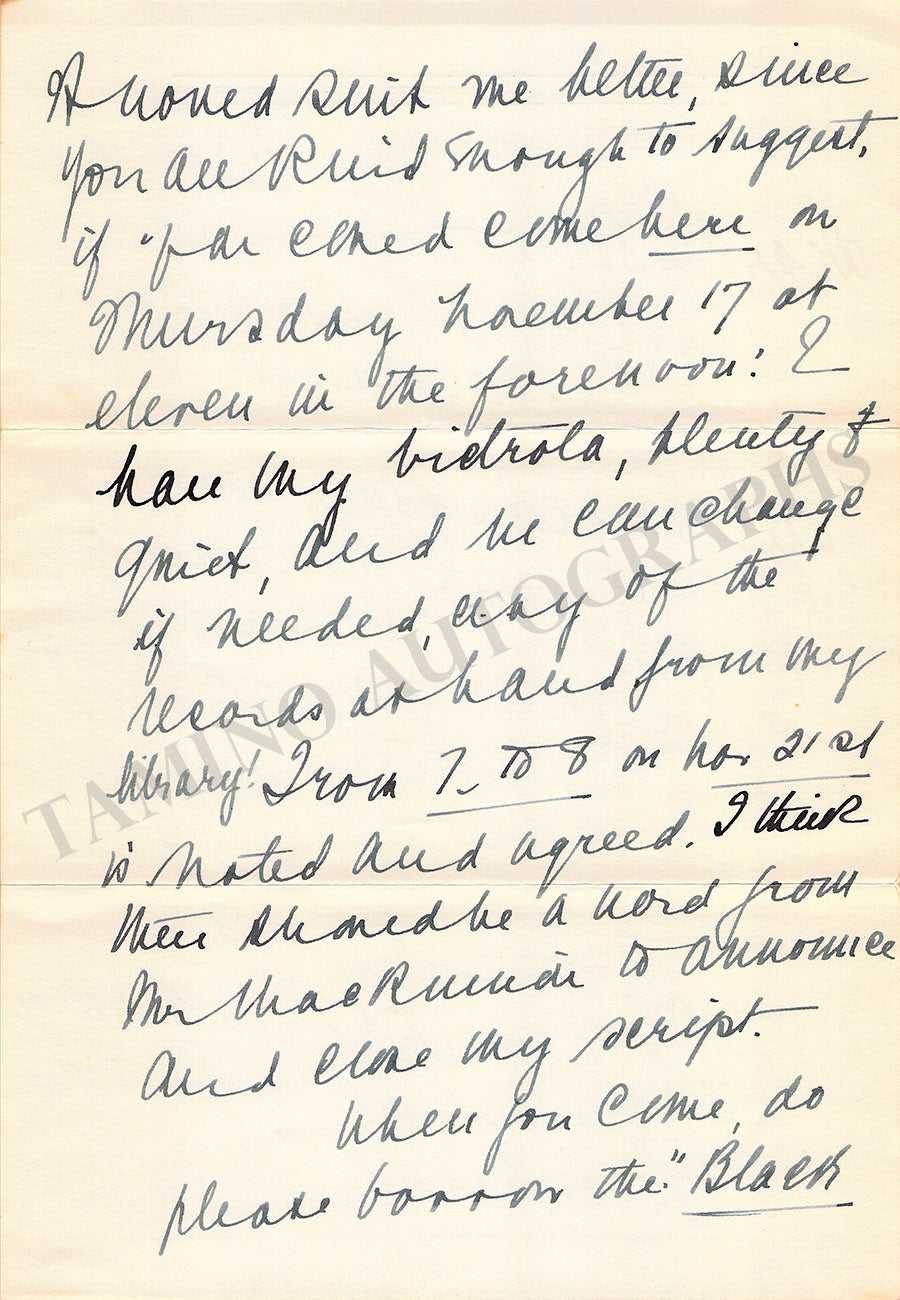 It would suit me better, since
you are kind enough to suggest,
if you could come here on
Thursday November 17 at
eleven in the forenoon: I
have my victrola, plenty of
quiet, and we can change
if needed, any of the
records at hand from my
library! From 7 to 8 on Nov 21st
is noted and agreed. I think
there should be a word from
Mr to announce
and close my script.
When you come, do
please borrow the "Black
TAMINO AUTOGRAPHS